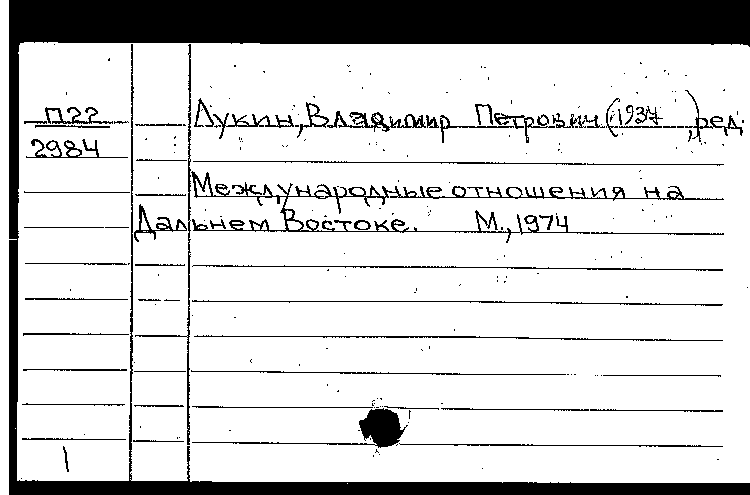 П22
2984
Лукин, Владимир Петрович (1937 ), ред.
Международные отношения на
Дальнем Востоке. М., 1974
1